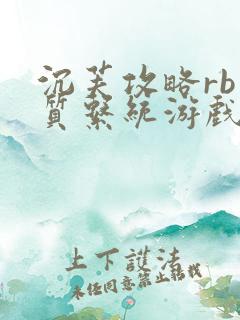 沉芙攻略rb
质系统游戏
上下護法
未经同意禁止转载